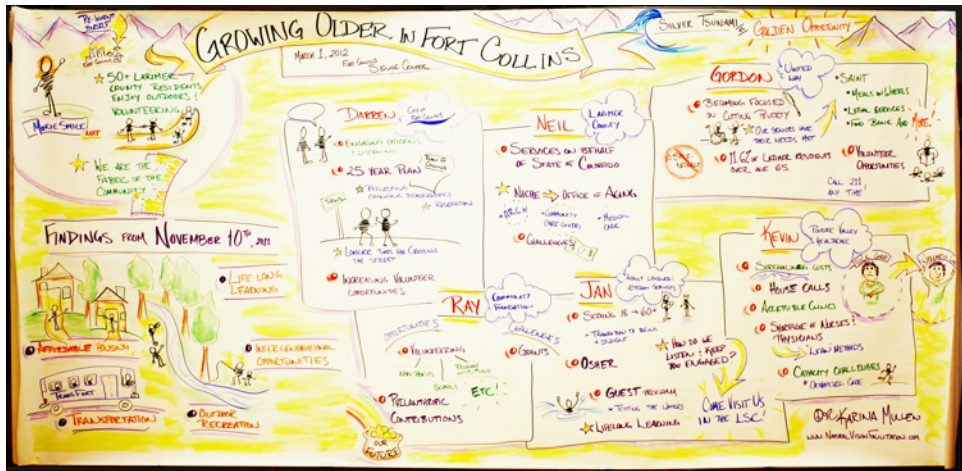 GROWING OLDER IN FORT COLLINS
MARCH 1, 2012
FORT COLLINS
SENIOR COUNCIL
SILVER TSUNAMI
GOLDEN OPPORTUNITY
RE-INVENT
50+ LARIMER
COUNTY RESIDENTS
ENJOY OUTDOORS &
VOLUNTEERING
MARIE SMILE
WE ARE THE
FABRIC OF THE
COMMUNITY
FINDINGS FROM NOVEMBER 10TH,
LIFE-LONG
LEARNING
AFFORDABLE HOUSING
INTERGENERATIONAL
OPPORTUNITIES
TRANSFORT
TRANSPORTATION
OUTDOOR
RECREATION
DARREN
CITY OF
FORT COLLINS
ENGAGING CITIZENS
& LISTENING
25 YEAR PLAN
REFLECTING
CHANGING DEMOGRAPHICS
RECREATION
LONGER TIMES FOR CROSSING
THE STREET
INCREASING VOLUNTEER
OPPORTUNITIES
NEIL
LARIMER
COUNTY
SERVICES ON BEHALF
OF STATE OF COLORADO
NICHE → OFFICE OF AGING
ARCH
COMMUNITY
CARE GIVERS
MEDICAL
CARE
CHALLENGES
GORDON
UNITED
WAY
BECOMING FOCUSED
ON CUTTING POVERTY
OUR SENIORS HAVE
THEIR NEEDS MET
11.6% OF LARIMER RESIDENTS
OVER AGE 65
SAINT
MEALS ON WHEELS
LEGAL SERVICES
FOOD BANK AND MORE!
VOLUNTEER
OPPORTUNITIES
CALL 211
ANY TIME
RAY
COMMUNITY
FOUNDATION
OPPORTUNITIES
CHALLENGES
VOLUNTEERING
NON PROFITS
SCHOOLS
ETC!
GRANTS
PHILANTHROPIC
CONTRIBUTIONS
OUR
FUTURE
JAN
ADULT LEARNERS
VETERAN SERVICES
SERVING 18 - 60+
TRANSITION TO BEING
A STUDENT
OSHER
GUEST PROGRAM
TESTING THE WATERS
LIFELONG LEARNING
HOW DO WE
LISTEN & KEEP
YOU ENGAGED?
COME VISIT US
IN THE LSC!
KEVIN
POUDRE VALLEY
HEALTHCARE
STREAMLINING COSTS
HOUSE CALLS
ACCESSIBLE CLINICS
SHORTAGE OF NURSES &
PHYSICIANS
LISTEN METHODS
CAPACITY CHALLENGES
KARINA MULLEN